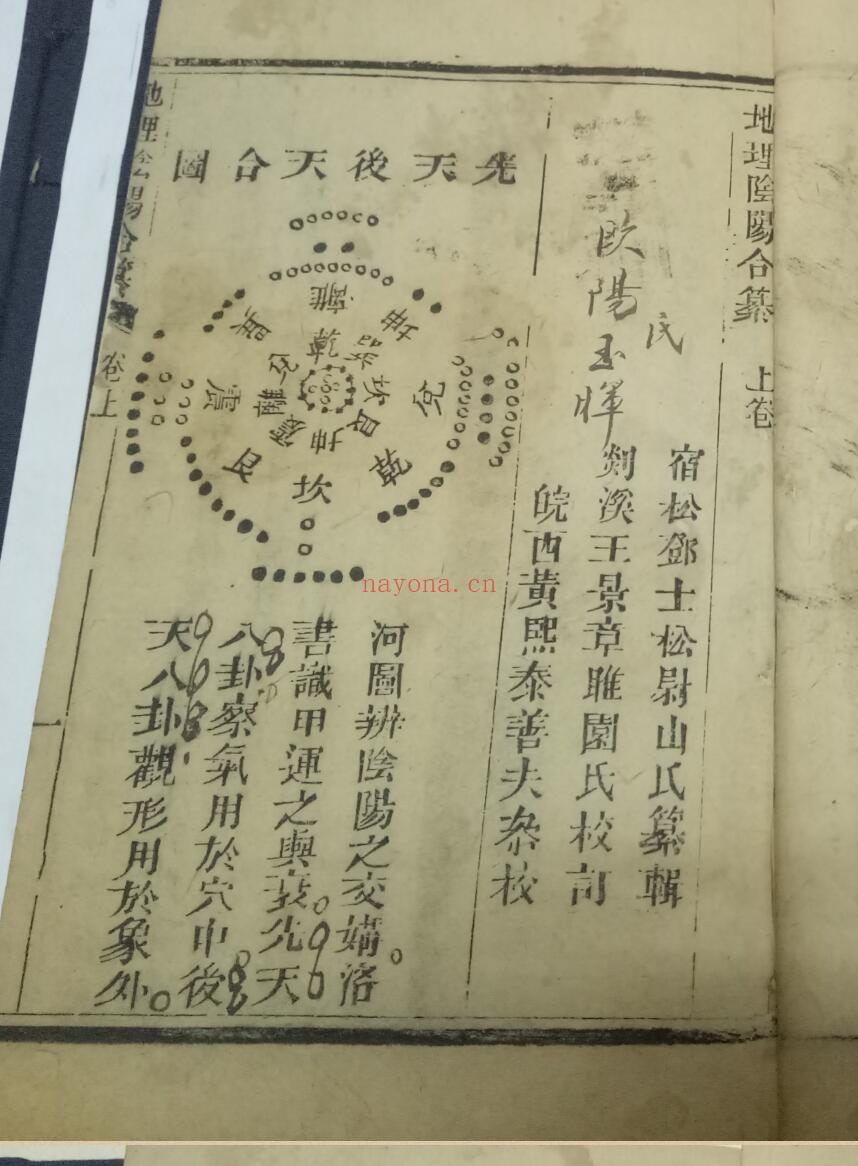 地理陰陽合纂 上卷
宿松鄧士松尉山氏纂輯
剡溪王景章雎園氏校訂
皖西黃熙泰善夫叅校
歐陽玉暉
氏
先天後天合圖
離
坤
兌
乾
坎
艮
震
巽
乾
巽
坎
艮
坤
震
離
兌
河圖辨陰陽之交媾洛
書識甲運之興衰先天
八卦察氣用於穴中後
天八卦觀形用於象外
地理陰陽合纂
卷上
一
nayona.cn